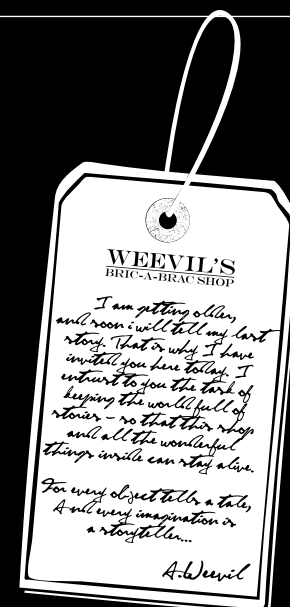 WEEVIL'S
BRIC-A-BRAC SHOP
I am getting older,
and soon i will tell my last
story. That is why I have
invited you here today. I
entrust to you the task of
keeping the world full of
stories – so that this shop
and all the wonderful
things inside can stay alive.
For every object tells a tale,
And every imagination is
a storyteller...
A.Weevil